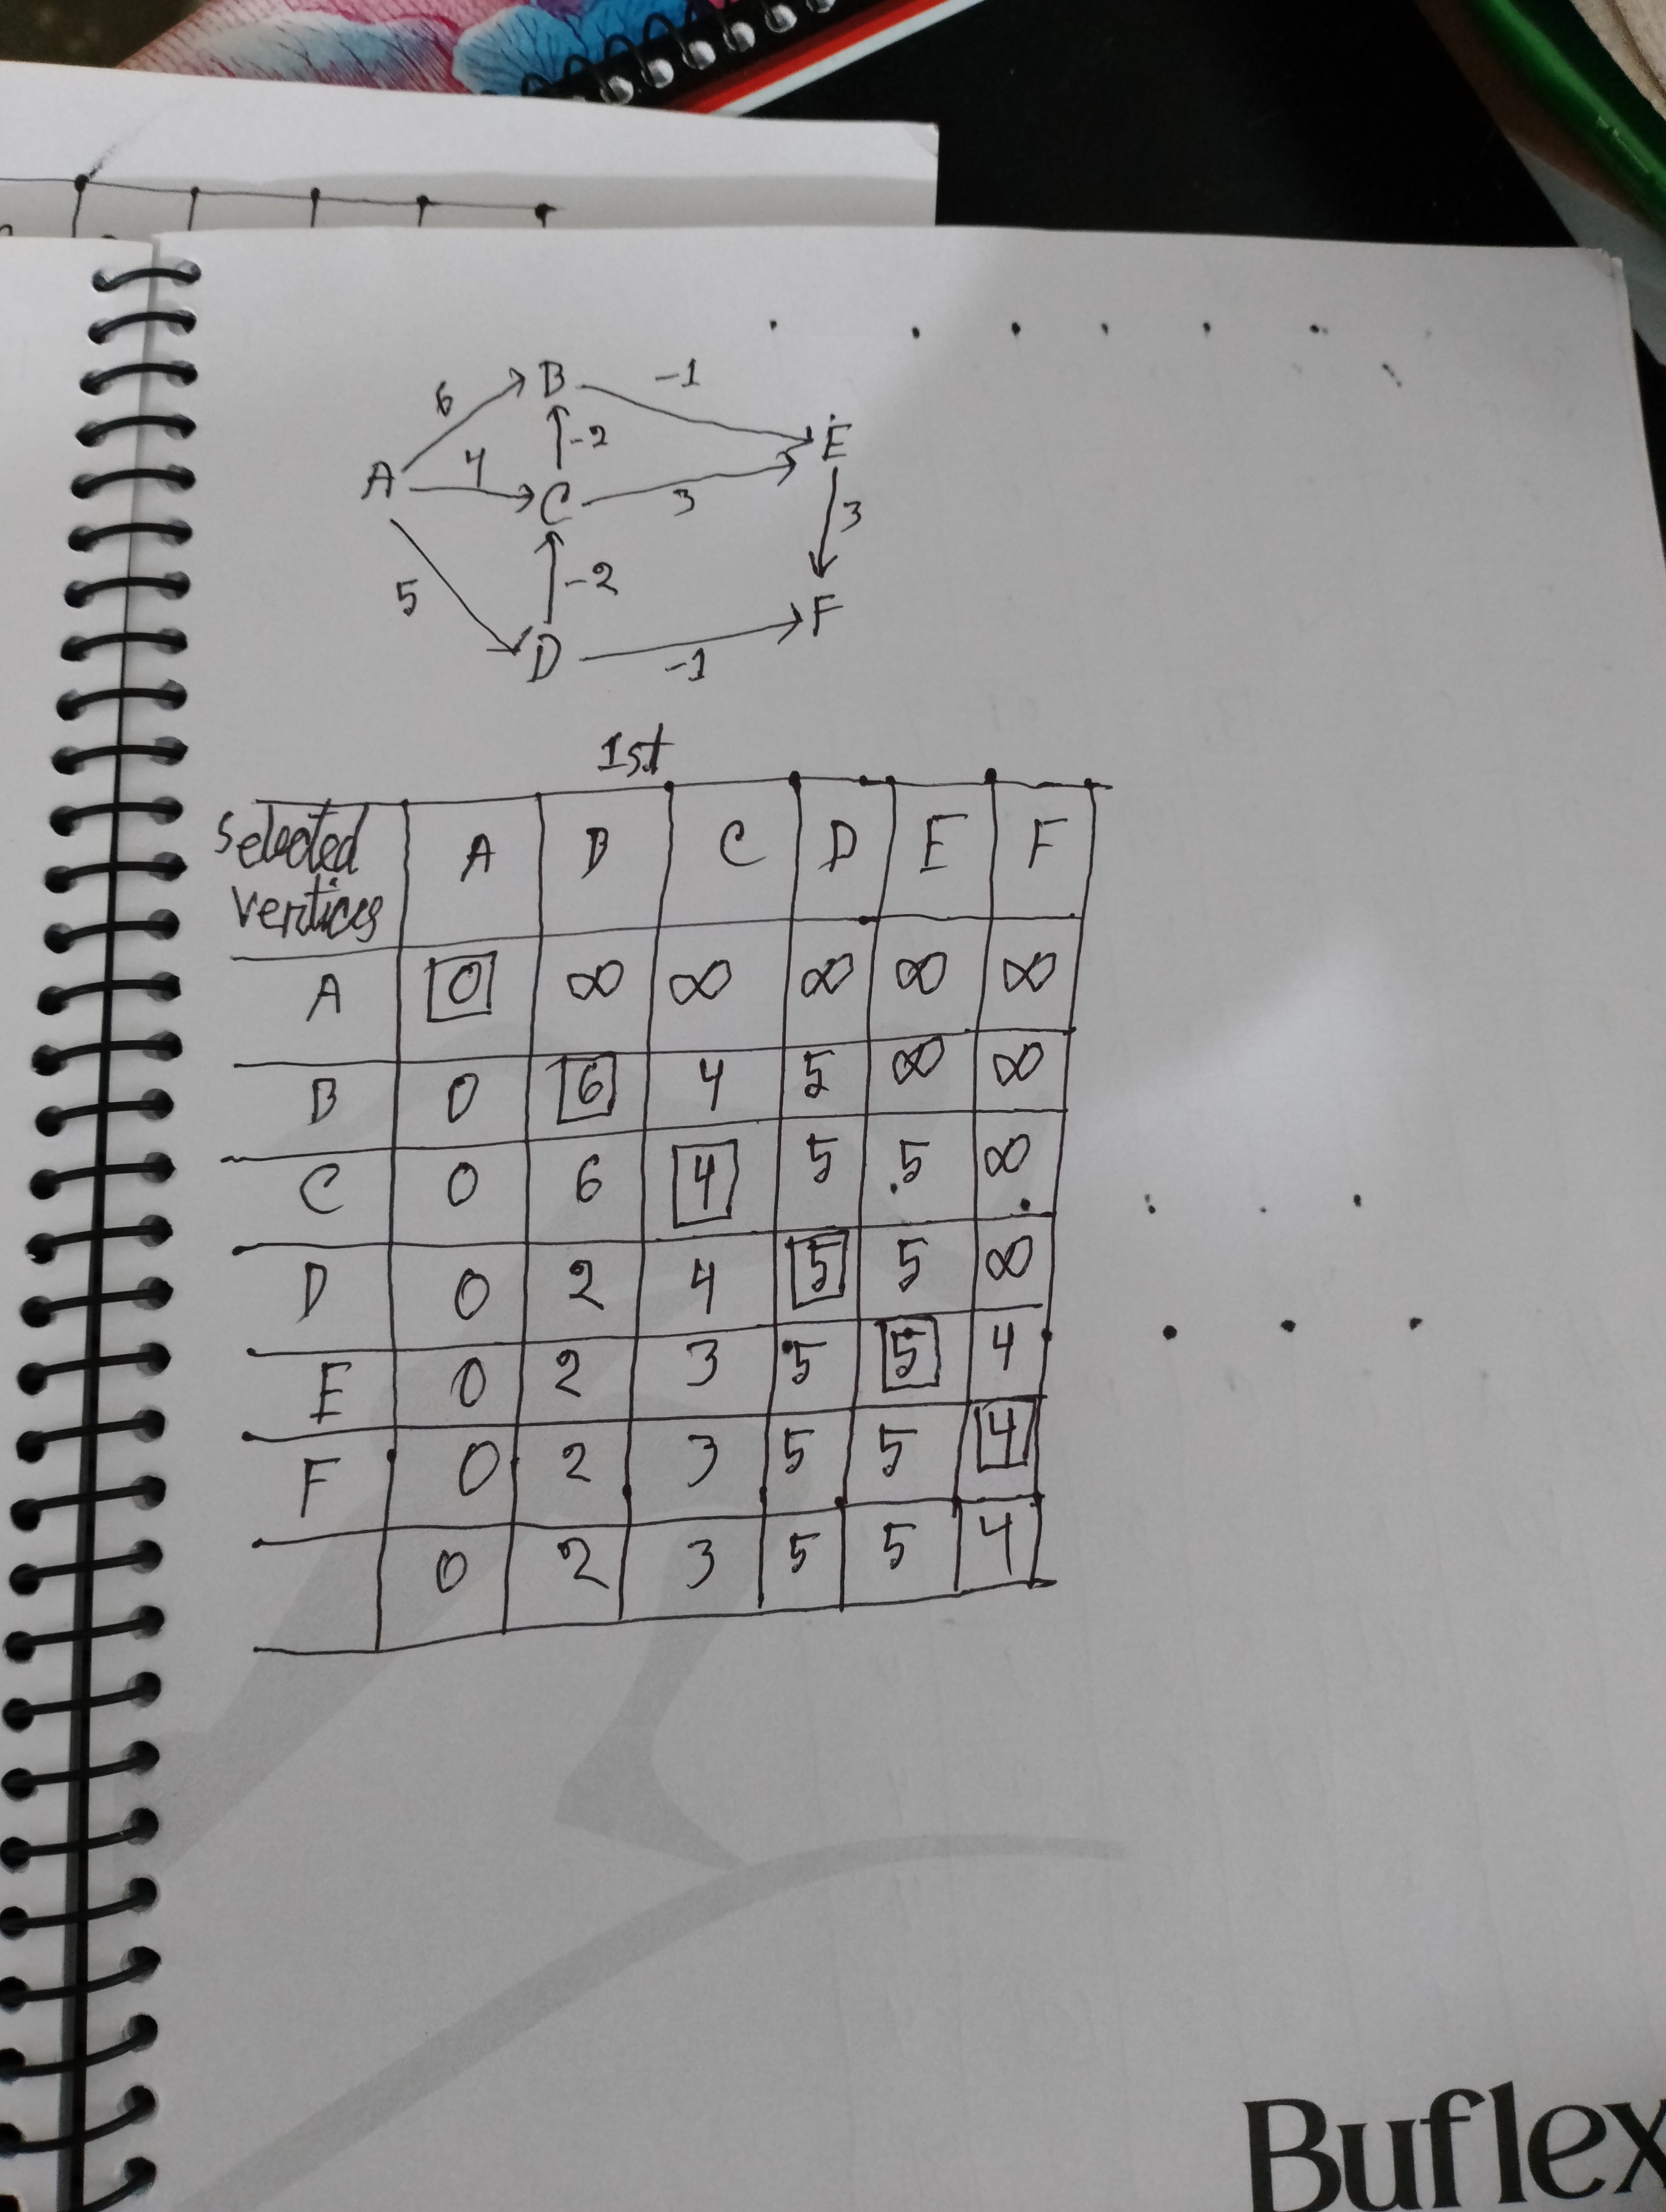 6 B -1
-2 E
A 4 C 3 3
5 -2 F
D -1
1st
Selected vertices A B C D E F
A 0 ∞ ∞ ∞ ∞ ∞
B 0 6 4 5 ∞ ∞
C 0 6 4 5 5 ∞
D 0 2 4 5 5 ∞
E 0 2 3 5 5 4
F 0 2 3 5 5 4
0 2 3 5 5 4
Buflex